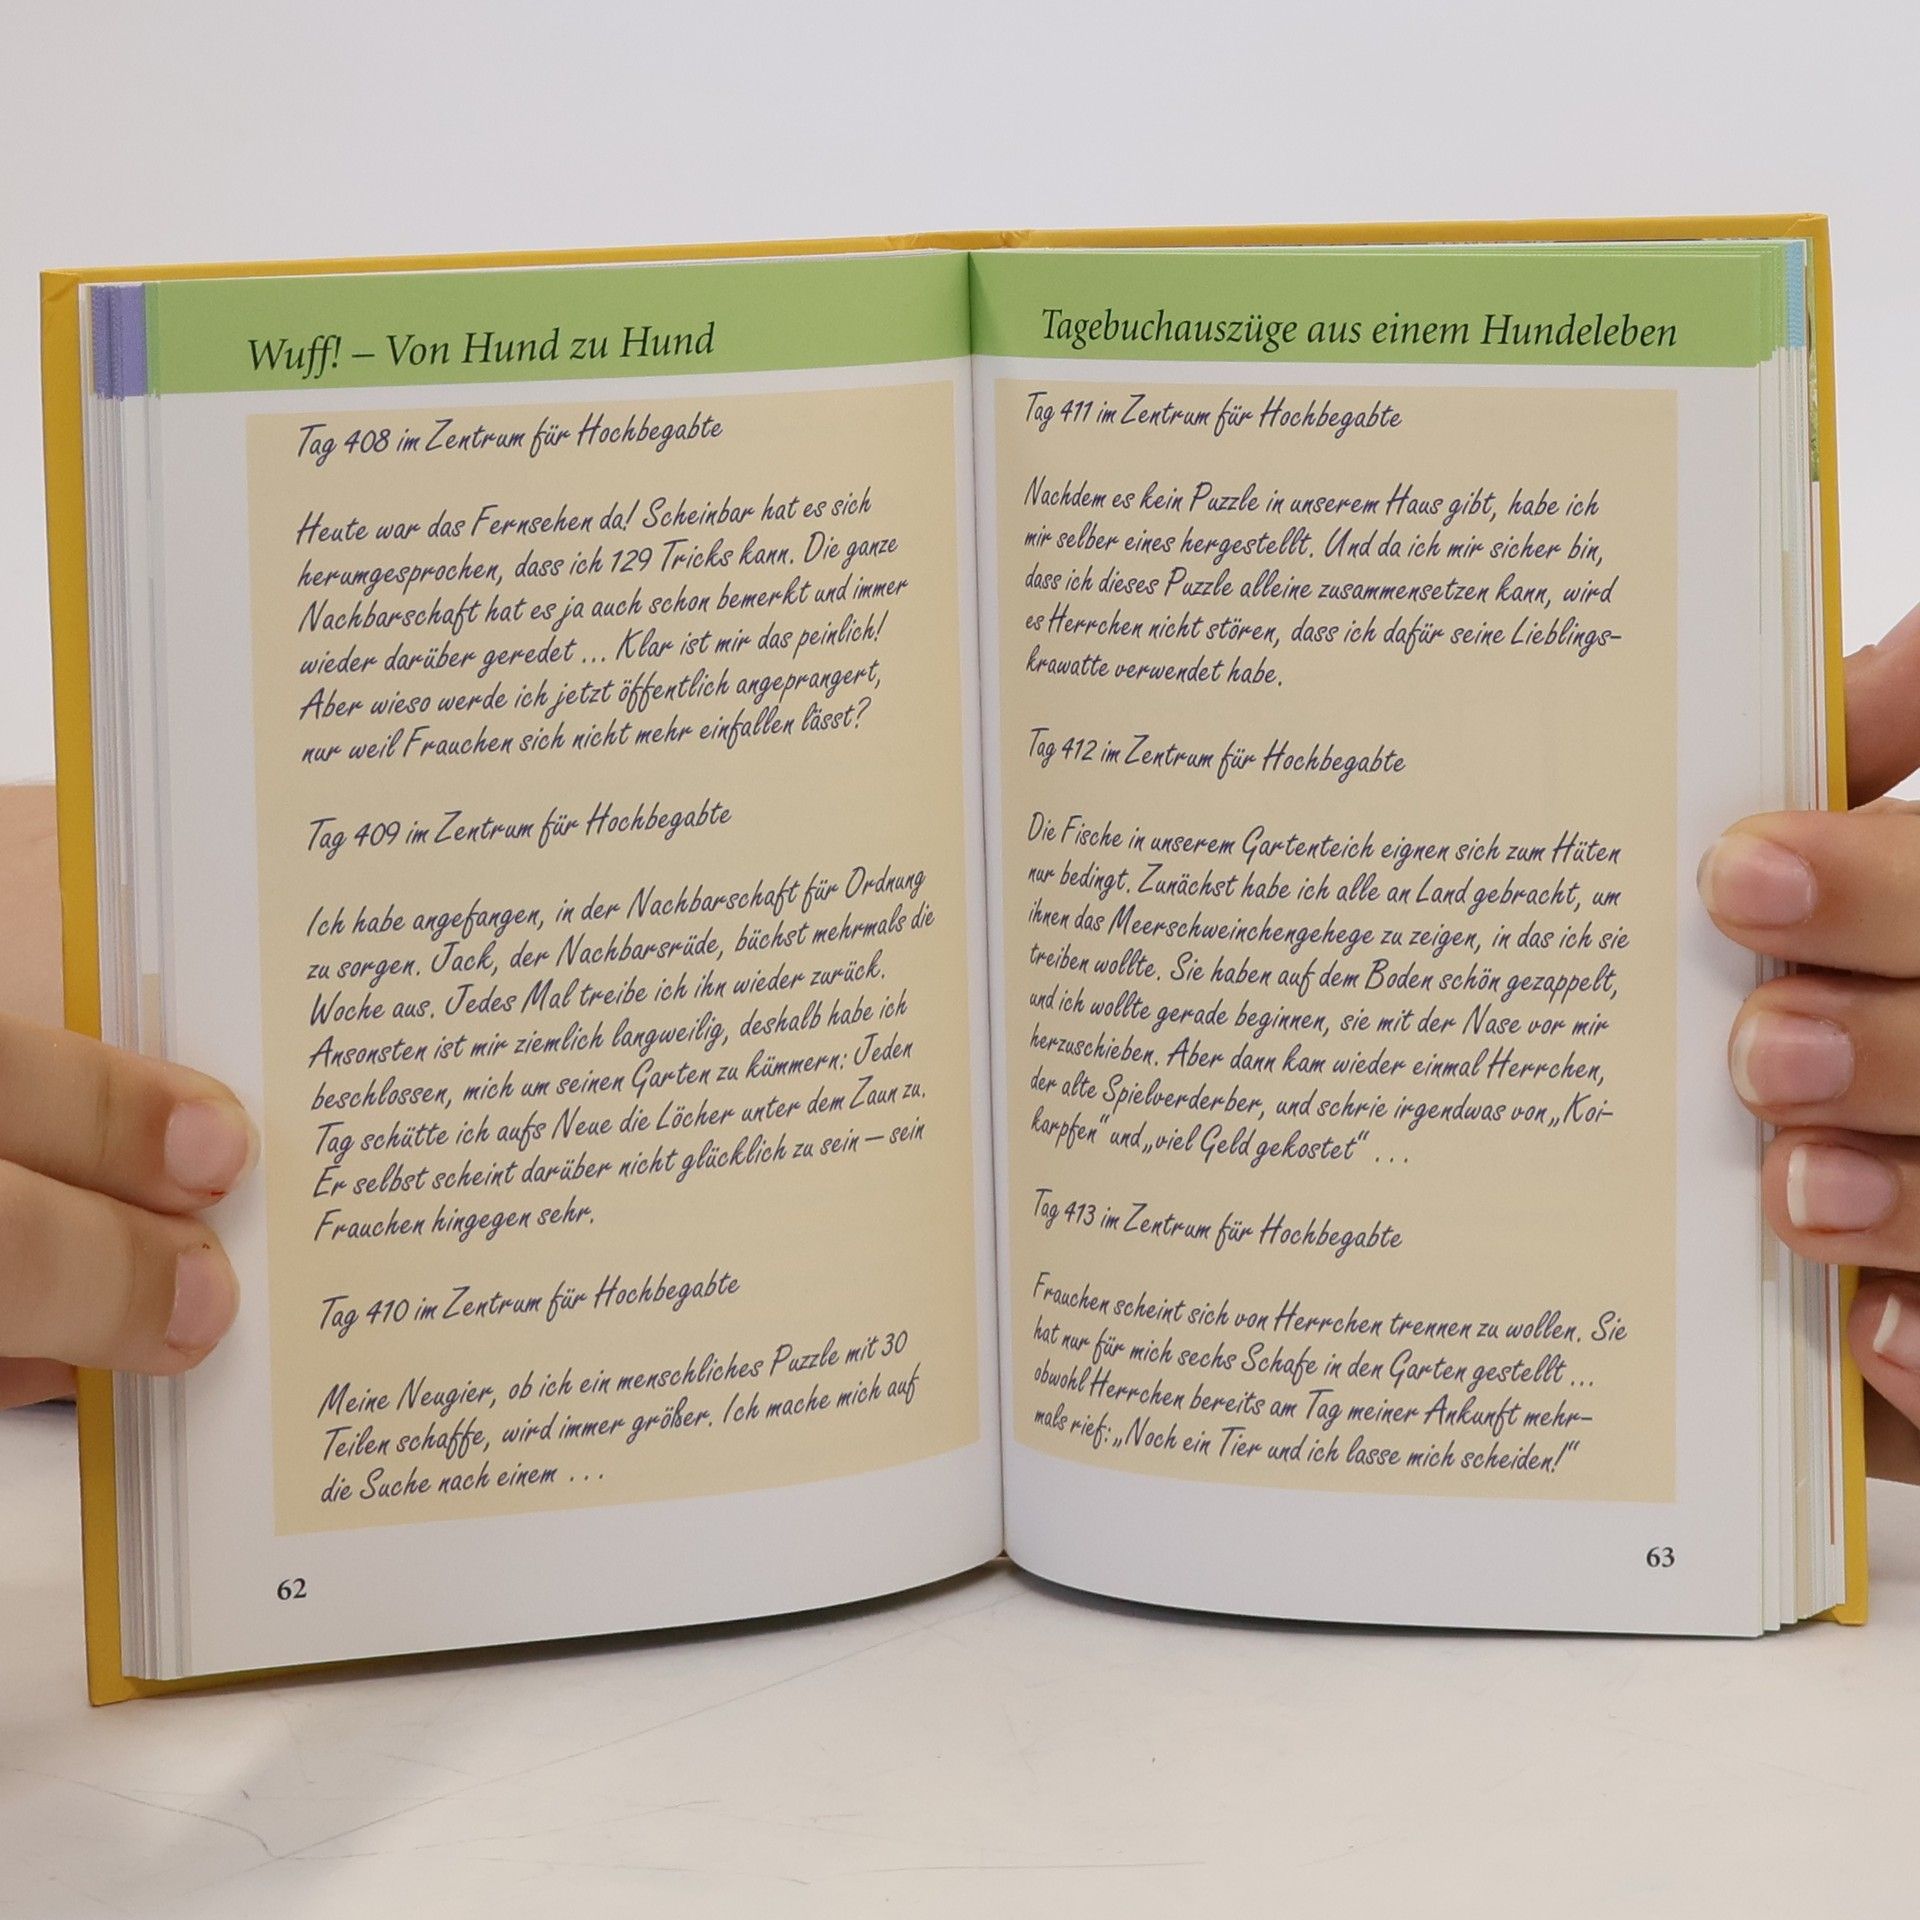 Wuff! – Von Hund zu Hund
Tag 408 im Zentrum für Hochbegabte
Heute war das Fernsehen da! Scheinbar hat es sich
herumgesprochen, dass ich 129 Tricks kann. Die ganze
Nachbarschaft hat es ja auch schon bemerkt und immer
wieder darüber geredet ... Klar ist mir das peinlich!
Aber wieso werde ich jetzt öffentlich angeprangert,
nur weil Frauchen sich nicht mehr einfallen lässt?
Tag 409 im Zentrum für Hochbegabte
Ich habe angefangen, in der Nachbarschaft für Ordnung
zu sorgen. Jack, der Nachbarsrüde, büchst mehrmals die
Woche aus. Jedes Mal treibe ich ihn wieder zurück.
Ansonsten ist mir ziemlich langweilig, deshalb habe ich
beschlossen, mich um seinen Garten zu kümmern: Jeden
Tag schütte ich aufs Neue die Löcher unter dem Zaun zu.
Er selbst scheint darüber nicht glücklich zu sein – sein
Frauchen hingegen sehr.
Tag 410 im Zentrum für Hochbegabte
Meine Neugier, ob ich ein menschliches Puzzle mit 30
Teilen schaffe, wird immer größer. Ich mache mich auf
die Suche nach einem ...
62
Tagebuchauszüge aus einem Hundeleben
Tag 411 im Zentrum für Hochbegabte
Nachdem es kein Puzzle in unserem Haus gibt, habe ich
mir selber eines hergestellt. Und da ich mir sicher bin,
dass ich dieses Puzzle alleine zusammensetzen kann, wird
es Herrchen nicht stören, dass ich dafür seine Lieblings-
krawatte verwendet habe.
Tag 412 im Zentrum für Hochbegabte
Die Fische in unserem Gartenteich eignen sich zum Hüten
nur bedingt. Zunächst habe ich alle an Land gebracht, um
ihnen das Meerschweinchengehege zu zeigen, in das ich sie
treiben wollte. Sie haben auf dem Boden schön gezappelt,
und ich wollte gerade beginnen, sie mit der Nase vor mir
herzuschieben. Aber dann kam wieder einmal Herrchen,
der alte Spielverderber, und schrie irgendwas von „Koi-
karpfen“ und „viel Geld gekostet“ ...
Tag 413 im Zentrum für Hochbegabte
Frauchen scheint sich von Herrchen trennen zu wollen. Sie
hat nur für mich sechs Schafe in den Garten gestellt ...
obwohl Herrchen bereits am Tag meiner Ankunft mehr-
mals rief: „Noch ein Tier und ich lasse mich scheiden!“
63